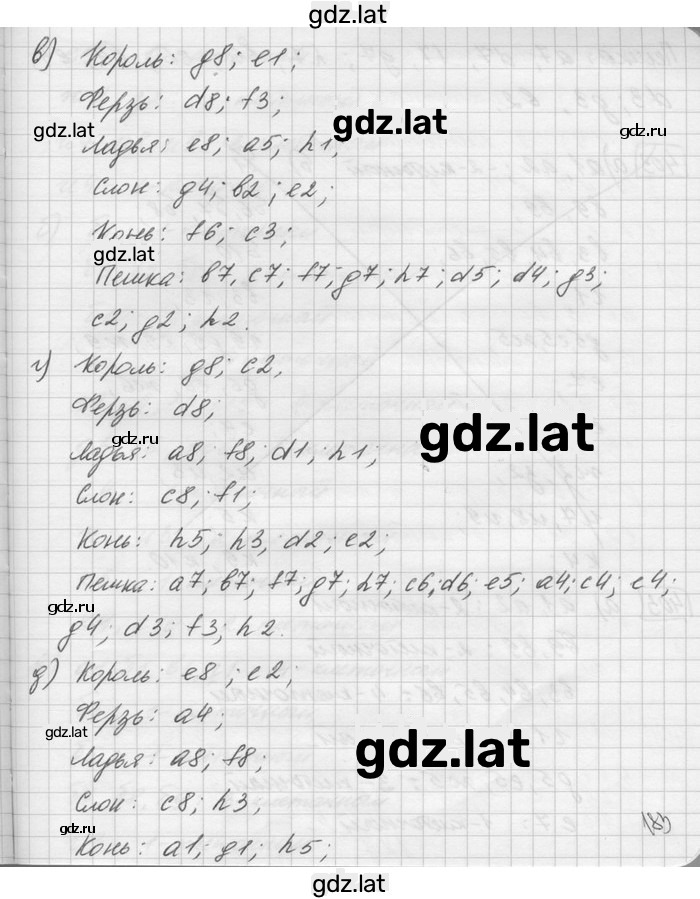 gdz.lat
в) Король: g8; e1;
Ферзь: d8; f3;
gdz.lat
gdz.lat
Ладья: e8; a5; h1;
Слон: g4; в2; e2;
Конь: f6; c3;
gdz.lat
Пешка: в7, c7; f7; g7; h7; d5; d4; g3;
c2; g2; h2.
г) Король: g8; c2,
Ферзь: d8;
gdz.lat
gdz.ru
Ладья: a8; f8; d1; h1;
Слон: c8; f1;
Конь: h5; h3, d2; e2;
Пешка: a7; в7; f7; g7; h7; c6; d6; e5; a4; c4; e4;
gdz.ru
g4; d3; f3; h2.
д) Король: e8; e2;
Ферзь: a4;
gdz.lat
gdz.lat
Ладья: a8; f8;
Слон: c8; h3;
gdz.ru
183
Конь: a1; g1; h5;
gdz.lat